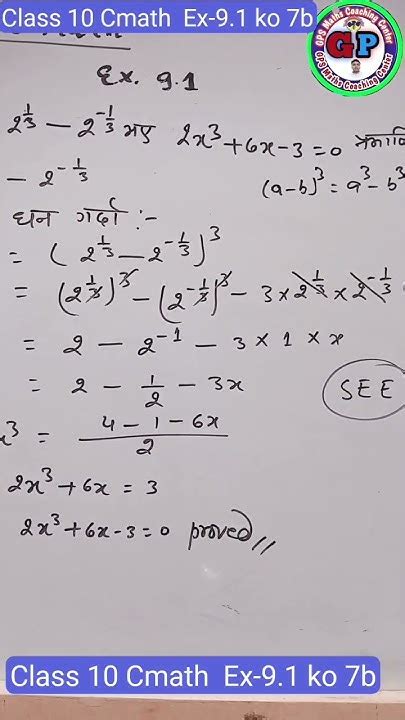 Class 10 Cmath Ex-9.1 ko 7b
GPS Maths Coaching Center
GP
GPS Maths Coaching Center
Ex. 9.1
2^{1/3} - 2^{-1/3} भए 2x³ + 6x - 3 = 0
- 2^{-1/3}
(a-b)³ = a³ - b³
घन गर्दा :-
= (2^{1/3} - 2^{-1/3})³
= (2^{1/3})³ - (2^{-1/3})³ - 3 × 2^{1/3} × 2^{-1/3}
= 2 - 2^{-1} - 3 × 1 × x
= 2 - 1/2 - 3x
SEE
x³ = (4 - 1 - 6x)/2
2x³ + 6x = 3
2x³ + 6x - 3 = 0 proved,,
Class 10 Cmath Ex-9.1 ko 7b